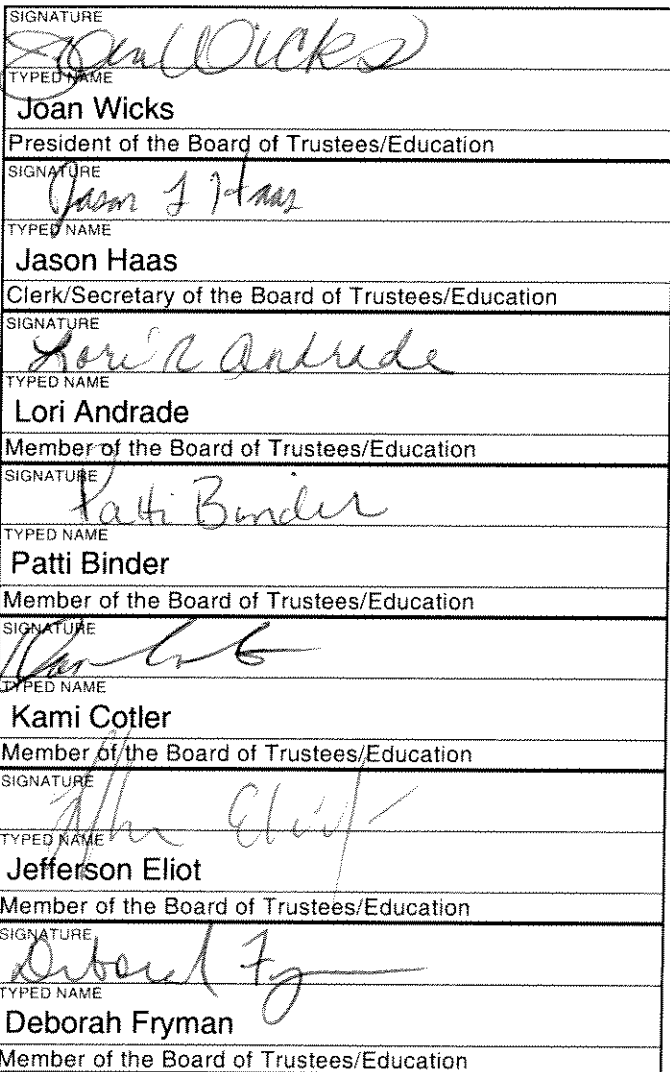 SIGNATURE
Joan Wicks
TYPED NAME
Joan Wicks
President of the Board of Trustees/Education
SIGNATURE
Jason L Haas
TYPED NAME
Jason Haas
Clerk/Secretary of the Board of Trustees/Education
SIGNATURE
Lori R Andrade
TYPED NAME
Lori Andrade
Member of the Board of Trustees/Education
SIGNATURE
Patti Binder
TYPED NAME
Patti Binder
Member of the Board of Trustees/Education
SIGNATURE
TYPED NAME
Kami Cotler
Member of the Board of Trustees/Education
SIGNATURE
Eliot
TYPED NAME
Jefferson Eliot
Member of the Board of Trustees/Education
SIGNATURE
Deborah Fryman
TYPED NAME
Deborah Fryman
Member of the Board of Trustees/Education